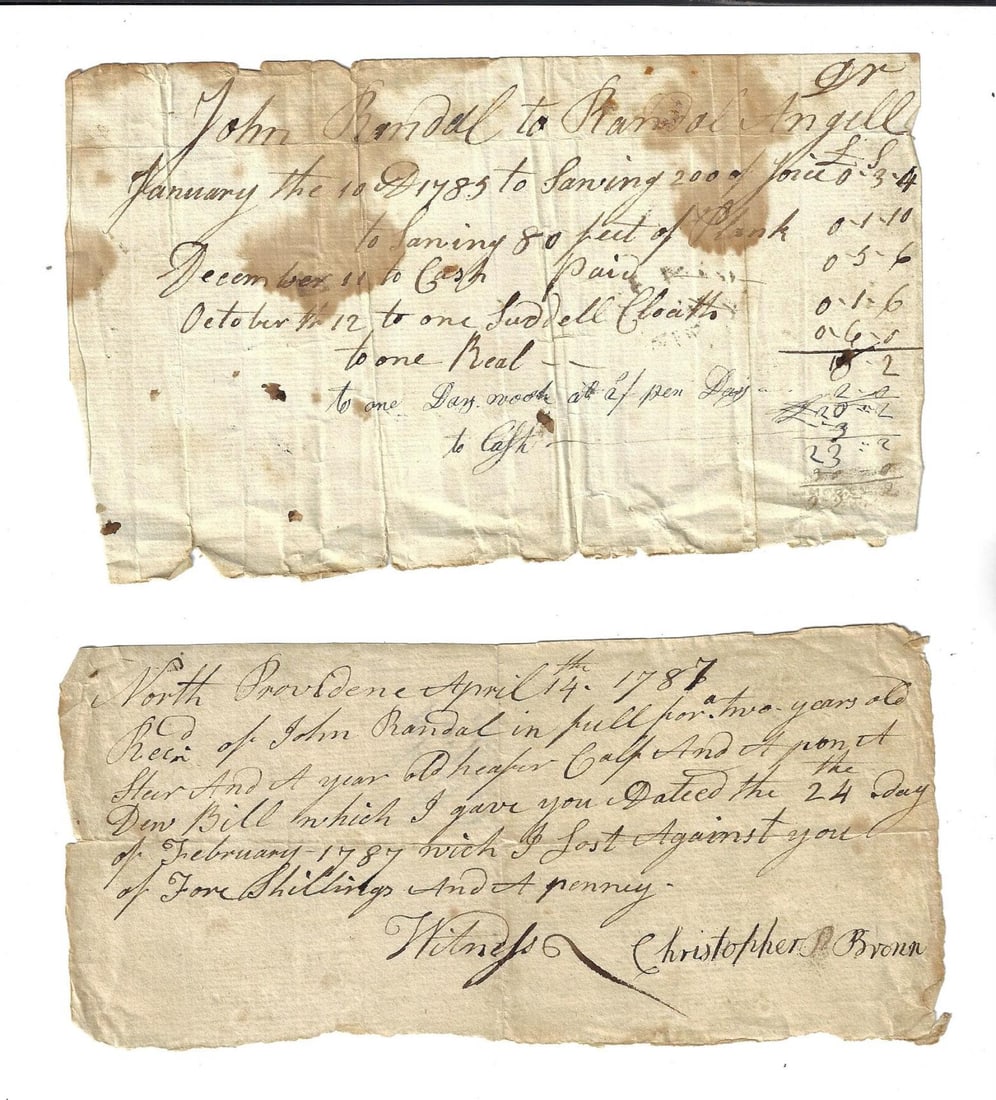 Dr
John Randal to Randal Angell
£ S
January the 10 D 1785 to Sawing 200 of Joice 0-3-4
to Sawing 80 feet of Plank 0-1-10
December 11 to Cash Paid 0-5-6
October th 12 to one Suddell Cloath 0-1-6
to one Real — 0-6-0
18 2
to one Days woork at 2/ pen Days 2-0
20=2
to Cash — -3
23=2
North Providene April 14th 1787
Recd of John Randal in full for a two years old
Steer And A year old heafer Calf And A pon A
Dew Bill which I gave you Dateed the 24 the day
of February 1787 wich I Lost Against you
of Fore Shillings And A penney.
Witness Christopher Brown